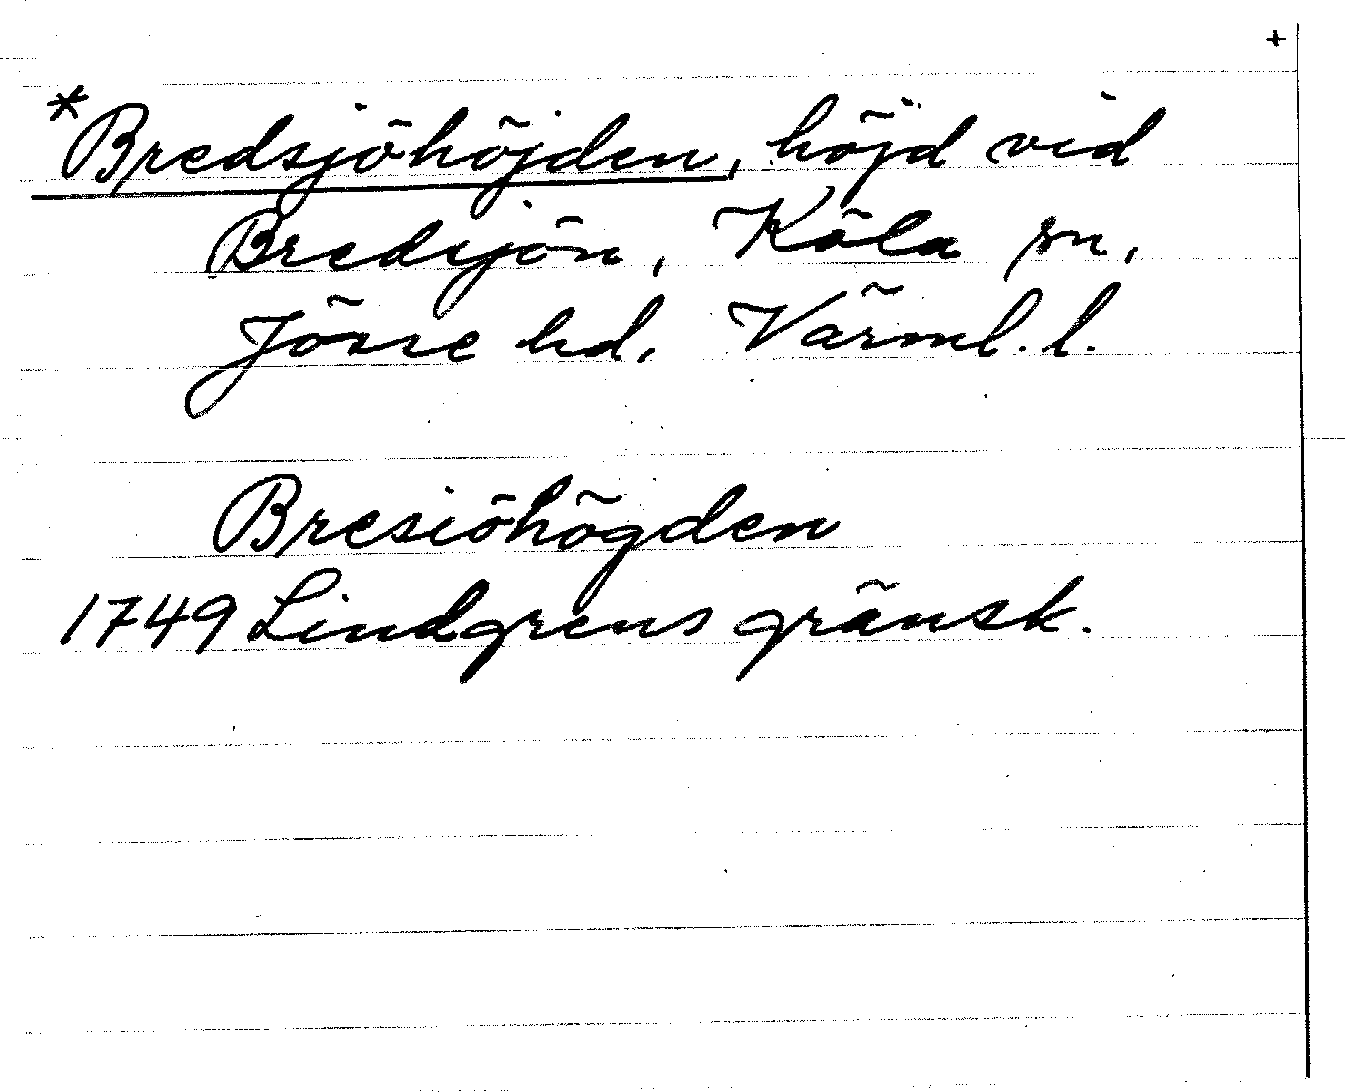 +
*Bredsjöhöjden, höjd vid
Bredsjön, Köla sn,
Jösse hd, Värml. l.
Bresiöhögden
1749 Lindgrens gränsk.